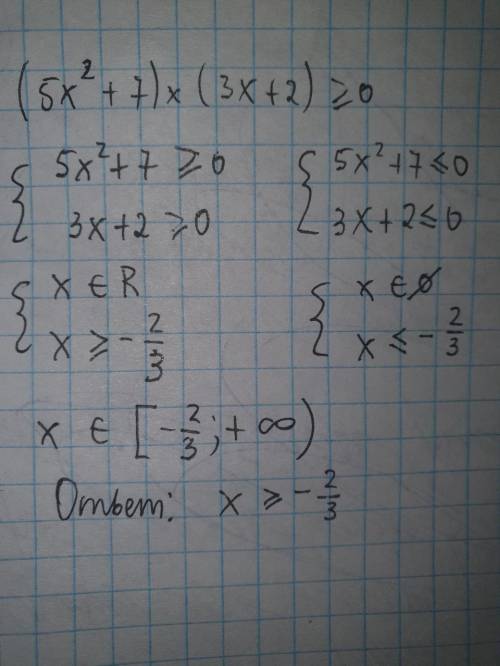 (5x² + 7) × (3x + 2) ≥ 0
{ 5x² + 7 ≥ 0 { 5x² + 7 ≤ 0
3x + 2 ≥ 0 3x + 2 ≤ 0
{ x ∈ R { x ∈ ∅
x ≥ -2/3 x ≤ -2/3
x ∈ [-2/3; +∞)
Ответ: x ≥ -2/3